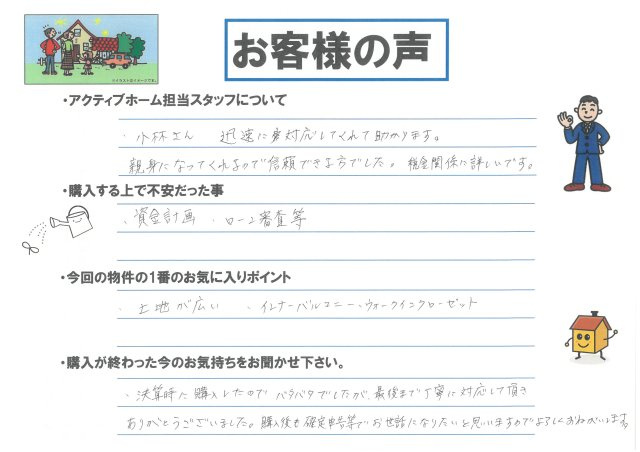 ※イラストはイメージです。
お客様の声
・アクティブホーム担当スタッフについて
・小林さん 迅速に対応してくれて助かります。
親身になってくれるので信頼できる方でした。税金関係に詳しいです。
・購入する上で不安だった事
・資金計画 ・ローン審査等
・今回の物件の1番のお気に入りポイント
・土地が広い ・インナーバルコニー・ウォークインクローゼット
・購入が終わった今のお気持ちをお聞かせ下さい。
・決算時に購入したのでバタバタでしたが、最後まで丁寧に対応して頂き
ありがとうございました。購入後も確定申告等でお世話になりたいと思いますのでよろしくおねがいします。